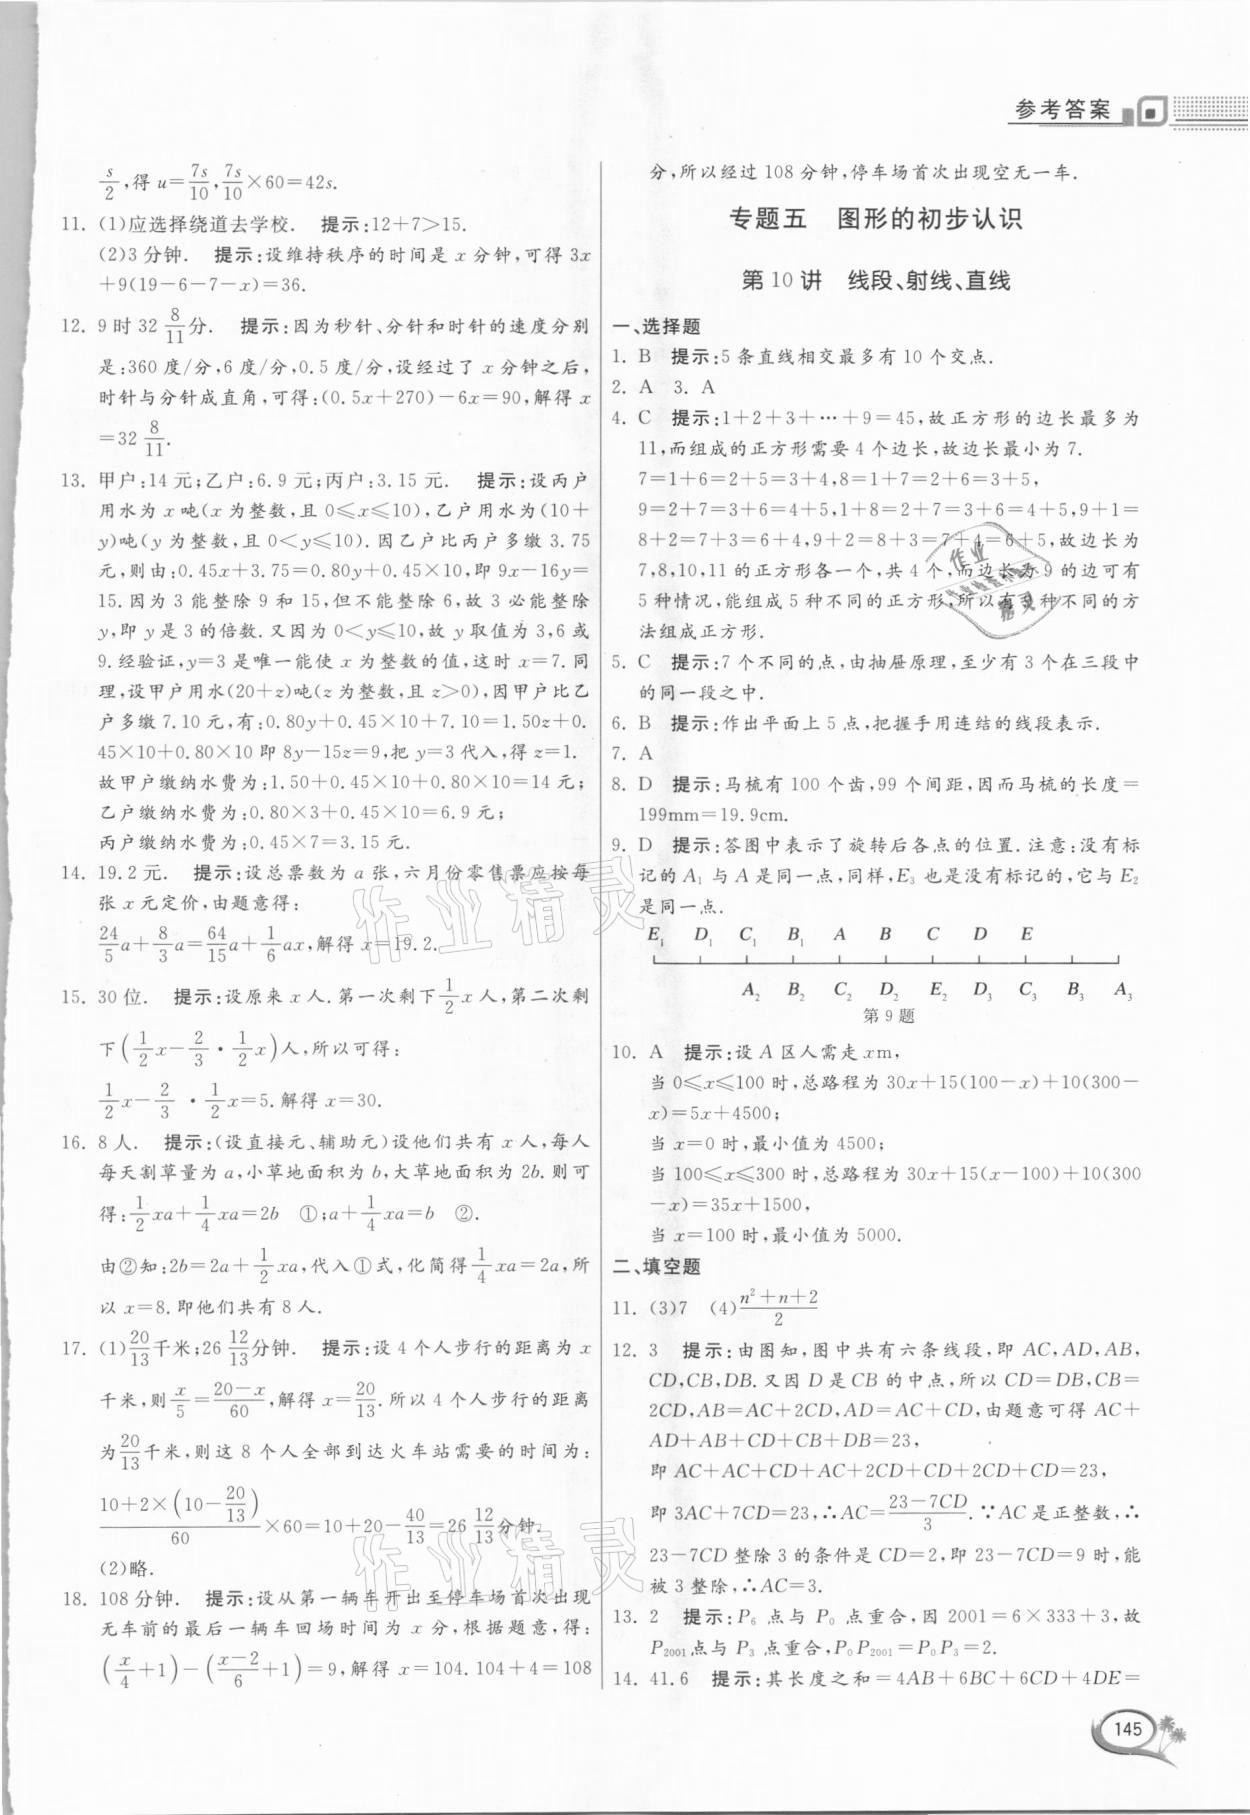 参考答案
s/2,得 u=7s/10,7s/10×60=42s.
11. (1)应选择绕道去学校. 提示:12+7>15.
(2)3分钟. 提示:设维持秩序的时间是 x 分钟,可得 3x
+9(19-6-7-x)=36.
12. 9时32 8/11分. 提示:因为秒针、分针和时针的速度分别
是:360度/分,6度/分,0.5度/分,设经过了 x 分钟之后,
时针与分针成直角,可得:(0.5x+270)-6x=90,解得 x
=32 8/11.
13. 甲户:14元;乙户:6.9元;丙户:3.15元. 提示:设丙户
用水为 x 吨(x 为整数,且 0⩽x⩽10),乙户用水为(10+
y)吨(y 为整数,且 0<y⩽10). 因乙户比丙户多缴 3.75
元,则由:0.45x+3.75=0.80y+0.45×10,即 9x-16y=
15. 因为 3 能整除 9 和 15,但不能整除 6,故 3 必能整除
y,即 y 是 3 的倍数. 又因为 0<y⩽10,故 y 取值为 3,6 或
9. 经验证,y=3 是唯一能使 x 为整数的值,这时 x=7. 同
理,设甲户用水(20+z)吨(z 为整数,且 z>0),因甲户比乙
户多缴 7.10 元,有:0.80y+0.45×10+7.10=1.50z+0.
45×10+0.80×10 即 8y-15z=9,把 y=3 代入,得 z=1.
故甲户缴纳水费为:1.50+0.45×10+0.80×10=14元;
乙户缴纳水费为:0.80×3+0.45×10=6.9元;
丙户缴纳水费为:0.45×7=3.15元.
14. 19.2元. 提示:设总票数为 a 张,六月份零售票应按每
张 x 元定价,由题意得:
24/5a+8/3a=64/15a+1/6ax,解得 x=19.2.
15. 30位. 提示:设原来 x 人. 第一次剩下1/2x 人,第二次剩
下(1/2x-2/3·1/2x)人,所以可得:
1/2x-2/3·1/2x=5. 解得 x=30.
16. 8人. 提示:(设直接元、辅助元)设他们共有 x 人,每人
每天割草量为 a,小草地面积为 b,大草地面积为 2b. 则可
得:1/2xa+1/4xa=2b ①;a+1/4xa=b ②.
由②知:2b=2a+1/2xa,代入①式,化简得1/4xa=2a,所
以 x=8. 即他们共有8人.
17. (1)20/13千米;26 12/13分钟. 提示:设4个人步行的距离为 x
千米,则x/5=(20-x)/60,解得 x=20/13. 所以4个人步行的距离
为20/13千米,则这8个人全部到达火车站需要的时间为:
(10+2×(10-20/13))/60×60=10+20-40/13=26 12/13分钟.
(2)略.
18. 108分钟. 提示:设从第一辆车开出至停车场首次出现
无车前的最后一辆车回场时间为 x 分,根据题意,得:
(x/4+1)-((x-2)/6+1)=9,解得 x=104. 104+4=108
分,所以经过108分钟,停车场首次出现空无一车.
专题五 图形的初步认识
第10讲 线段、射线、直线
一、选择题
1. B 提示:5条直线相交最多有10个交点.
2. A 3. A
4. C 提示:1+2+3+⋯+9=45,故正方形的边长最多为
11,而组成的正方形需要4个边长,故边长最小为7.
7=1+6=2+5=3+4,8=1+7=2+6=3+5,
9=2+7=3+6=4+5,1+8=2+7=3+6=4+5,9+1=
8+2=7+3=6+4,9+2=8+3=7+4=6+5,故边长为
7,8,10,11的正方形各一个,共4个,而边长为9的边可有
5种情况,能组成5种不同的正方形,所以有9种不同的方
法组成正方形.
5. C 提示:7个不同的点,由抽屉原理,至少有3个在三段中
的同一段之中.
6. B 提示:作出平面上5点,把握手用连结的线段表示.
7. A
8. D 提示:马梳有100个齿,99个间距,因而马梳的长度=
199mm=19.9cm.
9. D 提示:答图中表示了旋转后各点的位置. 注意:没有标
记的 A₁ 与 A 是同一点,同样,E₃ 也是没有标记的,它与 E₂
是同一点.
E₁ D₁ C₁ B₁ A B C D E
A₂ B₂ C₂ D₂ E₂ D₃ C₃ B₃ A₃
第9题
10. A 提示:设 A 区人需走 xm,
当 0⩽x⩽100 时,总路程为 30x+15(100-x)+10(300-
x)=5x+4500;
当 x=0 时,最小值为 4500;
当 100⩽x⩽300 时,总路程为 30x+15(x-100)+10(300
-x)=35x+1500,
当 x=100 时,最小值为 5000.
二、填空题
11. (3)7 (4)(n²+n+2)/2
12. 3 提示:由图知,图中共有六条线段,即 AC,AD,AB,
CD,CB,DB. 又因 D 是 CB 的中点,所以 CD=DB,CB=
2CD,AB=AC+2CD,AD=AC+CD,由题意可得 AC+
AD+AB+CD+CB+DB=23,
即 AC+AC+CD+AC+2CD+CD+2CD+CD=23,
即 3AC+7CD=23,∴AC=(23-7CD)/3. ∵AC 是正整数,∴
23-7CD 整除 3 的条件是 CD=2,即 23-7CD=9 时,能
被 3 整除,∴AC=3.
13. 2 提示:P₆ 点与 P₀ 点重合,因 2001=6×333+3,故
P₂₀₀₁点与 P₃ 点重合,P₀P₂₀₀₁=P₀P₃=2.
14. 41.6 提示:其长度之和=4AB+6BC+6CD+4DE=
145
作业精灵
作业精灵
作业
精灵